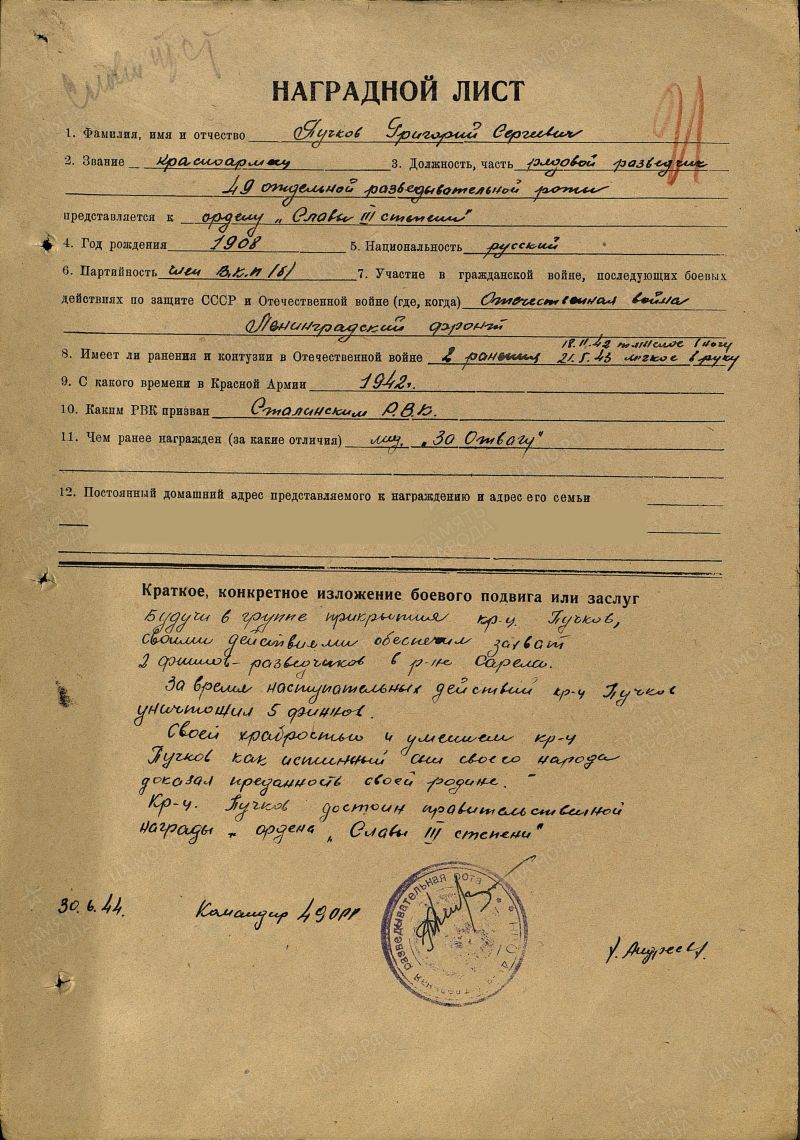 Славы III ст
НАГРАДНОЙ ЛИСТ
1. Фамилия, имя и отчество Пучков Григорий Сергеевич
2. Звание красноармеец 3. Должность, часть рядовой разведчик
49 отдельной разведывательной роты
представляется к ордену „Славы III степени"
4. Год рождения 1908 5. Национальность русский
6. Партийность член В.К.П(б) 7. Участие в гражданской войне, последующих боевых
действиях по защите СССР и Отечественной войне (где, когда) Отечественная война
Ленинградский фронт
18.11.42 тяжелое в ногу
8. Имеет ли ранения и контузии в Отечественной войне 2 ранения 21.5.43 легкое в руку
9. С какого времени в Красной Армии 1942г.
10. Каким РВК призван Сталинским Р.В.К.
11. Чем ранее награжден (за какие отличия) „За Отвагу"
12. Постоянный домашний адрес представляемого к награждению и адрес его семьи
Краткое, конкретное изложение боевого подвига или заслуг
Будучи в группе прикрытия кр-ц. Пучков,
своими действиями обеспечил захват
2 финнов-разведчиков в р-не Сарела.
За время наступательных действий кр-ц Пучков
уничтожил 5 финнов.
Своей храбростью и умением кр-ц
Пучков как истинный сын своего народа
доказал преданность своей родине.
Кр-ц. Пучков достоин правительственной
награды - ордена „Славы III степени"
30.6.44. Командир 49 ОРР
разведывательная рота
/. Андреев/.